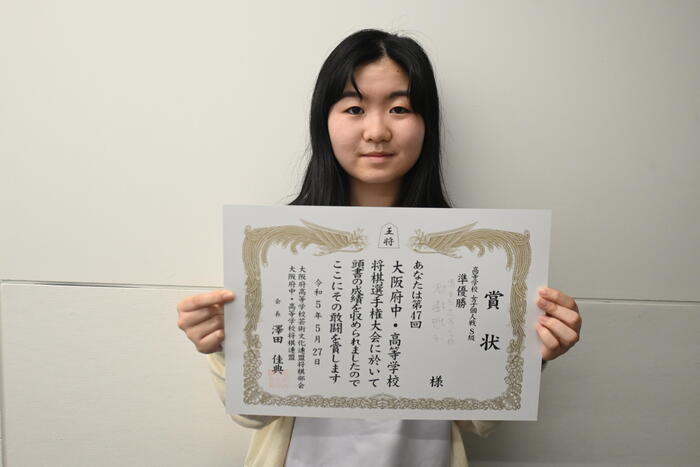 王将
賞状
高等学校・女子個人戦S級
準優勝
様
あなたは第47回
大阪府中・高等学校
将棋選手権大会に於いて
頭書の成績を収められましたので
ここにその敢闘を賞します
令和5年5月27日
大阪府高等学校芸術文化連盟将棋部会
大阪府中・高等学校将棋連盟
会長 澤田佳典